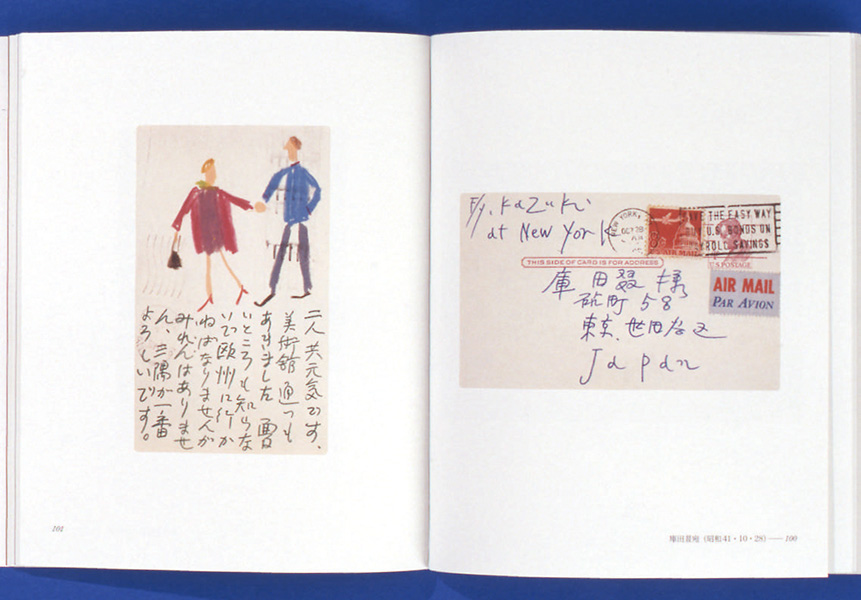 F/y. Kazuki
at New York
NEW YORK
OCT 28
SAVE THE EASY WAY
BUY U.S. BONDS ON
PAYROLL SAVINGS
AIR MAIL
U.S. POSTAGE
THIS SIDE OF CARD IS FOR ADDRESS
AIR MAIL
PAR AVION
庫田叕様
砧町58
東京、世田谷区
Japan
庫田叕宛(昭和41・10・28)── 100
二人共元気です、
美術館通つも
あきました 面白
いところも知らな
いで欧州に行か
ねばなりませんが
みれんはありませ
ん、三隅が一番
よろしいです。
101